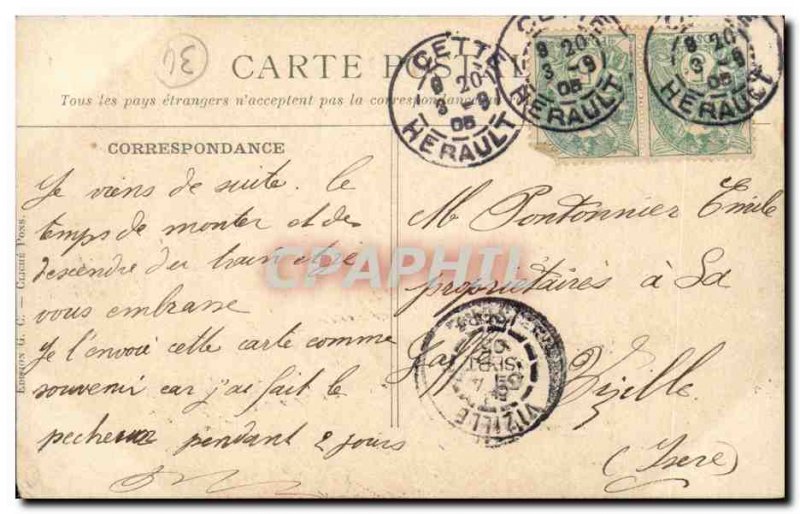 34
CARTE POSTALE
Tous les pays étrangers n'acceptent pas la correspondance au
CORRESPONDANCE
Je viens de suite. le
temps de monter et de
descendre du train et je
vous embrasse
Je l'envoie cette carte comme
souvenir car j'ai fait le
pecheur pendant 2 jours
M Pontonnier Emile
propriétaires à La
Vizille
(Isere)
CETTE
9 20
3 -9
05
HERAULT
CETTE
9 20
3 -9
05
HERAULT
9 20
3 -9
05
HERAULT
VIZILLE
SEPT
05
EDITION G. C. — CLICHÉ PONS.
CPAPHIL